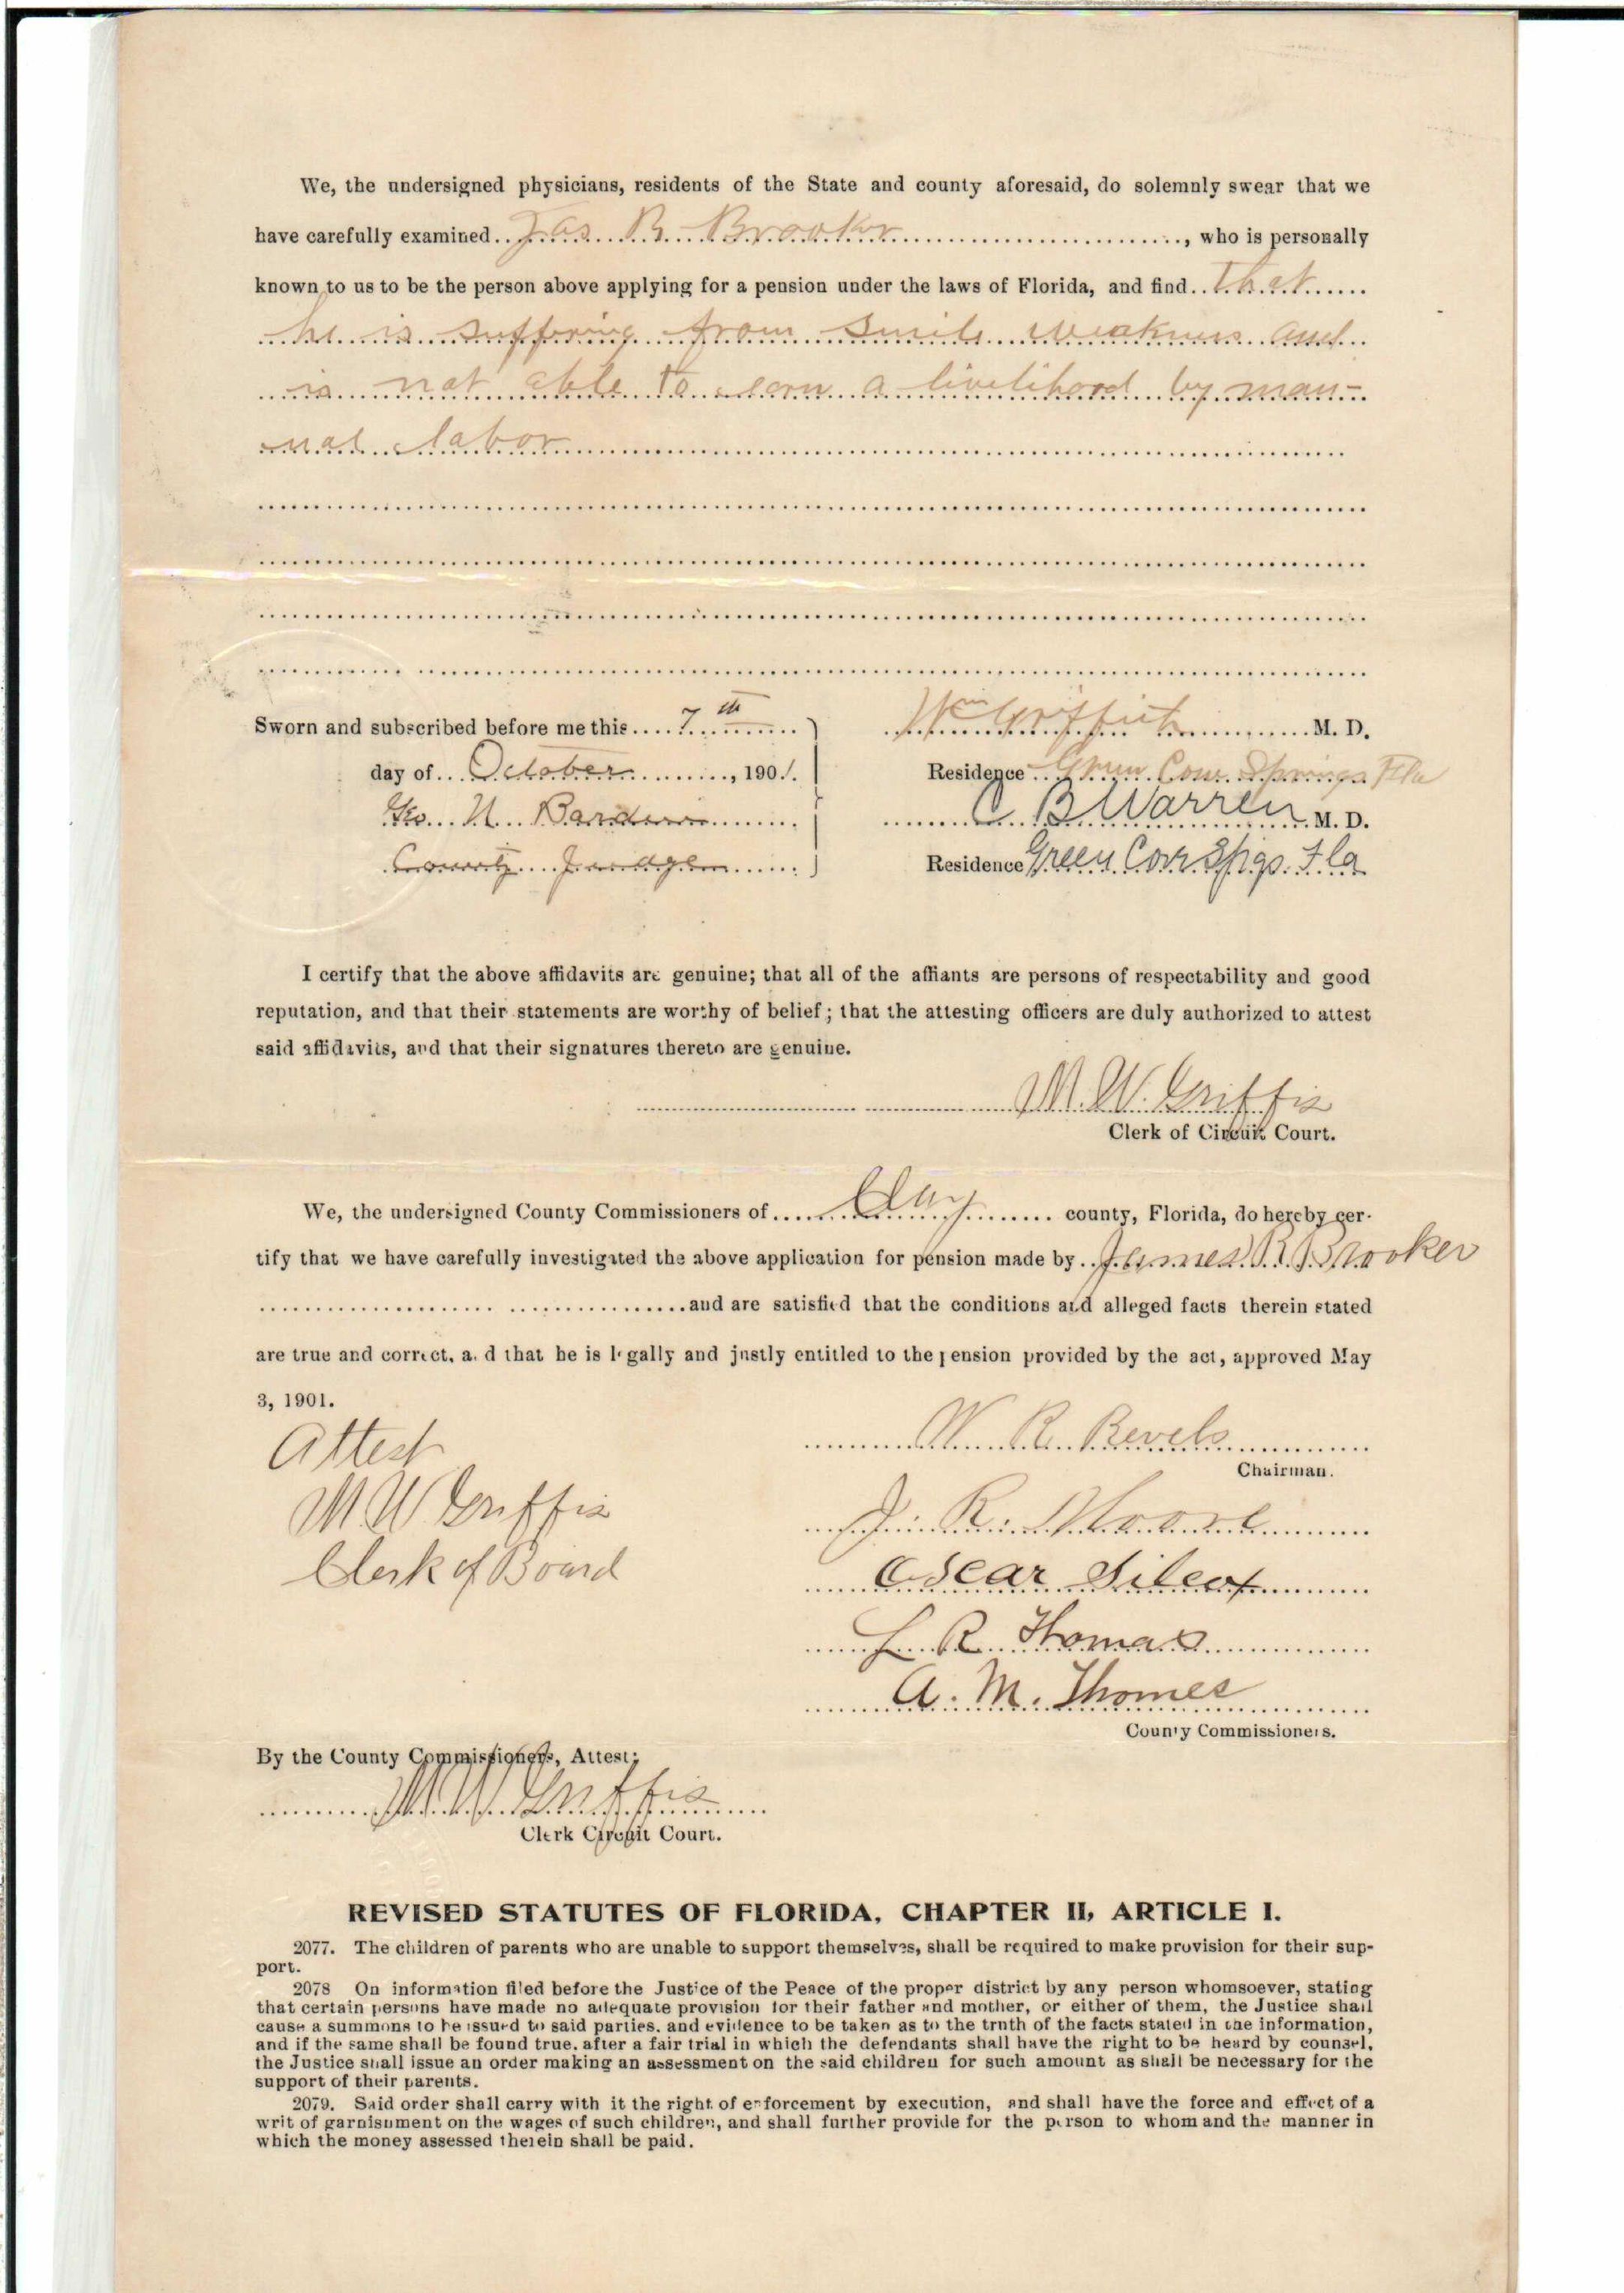 We, the undersigned physicians, residents of the State and county aforesaid, do solemnly swear that we
have carefully examined Jas R Brooker, who is personally
known to us to be the person above applying for a pension under the laws of Florida, and find that
he is suffering from senile weakness and
is not able to earn a livelihood by man-
nual labor
Sworn and subscribed before me this 7th
day of October, 1901.
Geo. N.
County Judge
Wm Griffith M. D.
Residence Green Cove Springs Fla
C B Warren M. D.
Residence Green Cove Spgs. Fla
I certify that the above affidavits are genuine; that all of the affiants are persons of respectability and good
reputation, and that their statements are worthy of belief; that the attesting officers are duly authorized to attest
said affidavits, and that their signatures thereto are genuine.
M. W. Griffis
Clerk of Circuit Court.
We, the undersigned County Commissioners of Clay county, Florida, do hereby cer-
tify that we have carefully investigated the above application for pension made by James R Brooker
and are satisfied that the conditions and alleged facts therein stated
are true and correct, and that he is legally and justly entitled to the pension provided by the act, approved May
3, 1901.
Attest
M W Griffis
Clerk of Board
W. R. Revels
Chairman.
J. R. Moore
Oscar Silcox
L R Thomas
A. M. Thomes
County Commissioners.
By the County Commissioners, Attest:
M W Griffis
Clerk Circuit Court.
REVISED STATUTES OF FLORIDA, CHAPTER II, ARTICLE I.
2077. The children of parents who are unable to support themselves, shall be required to make provision for their sup-
port.
2078 On information filed before the Justice of the Peace of the proper district by any person whomsoever, stating
that certain persons have made no adequate provision for their father and mother, or either of them, the Justice shall
cause a summons to be issued to said parties, and evidence to be taken as to the truth of the facts stated in the information,
and if the same shall be found true, after a fair trial in which the defendants shall have the right to be heard by counsel,
the Justice shall issue an order making an assessment on the said children for such amount as shall be necessary for the
support of their parents.
2079. Said order shall carry with it the right of enforcement by execution, and shall have the force and effect of a
writ of garnishment on the wages of such children, and shall further provide for the person to whom and the manner in
which the money assessed therein shall be paid.